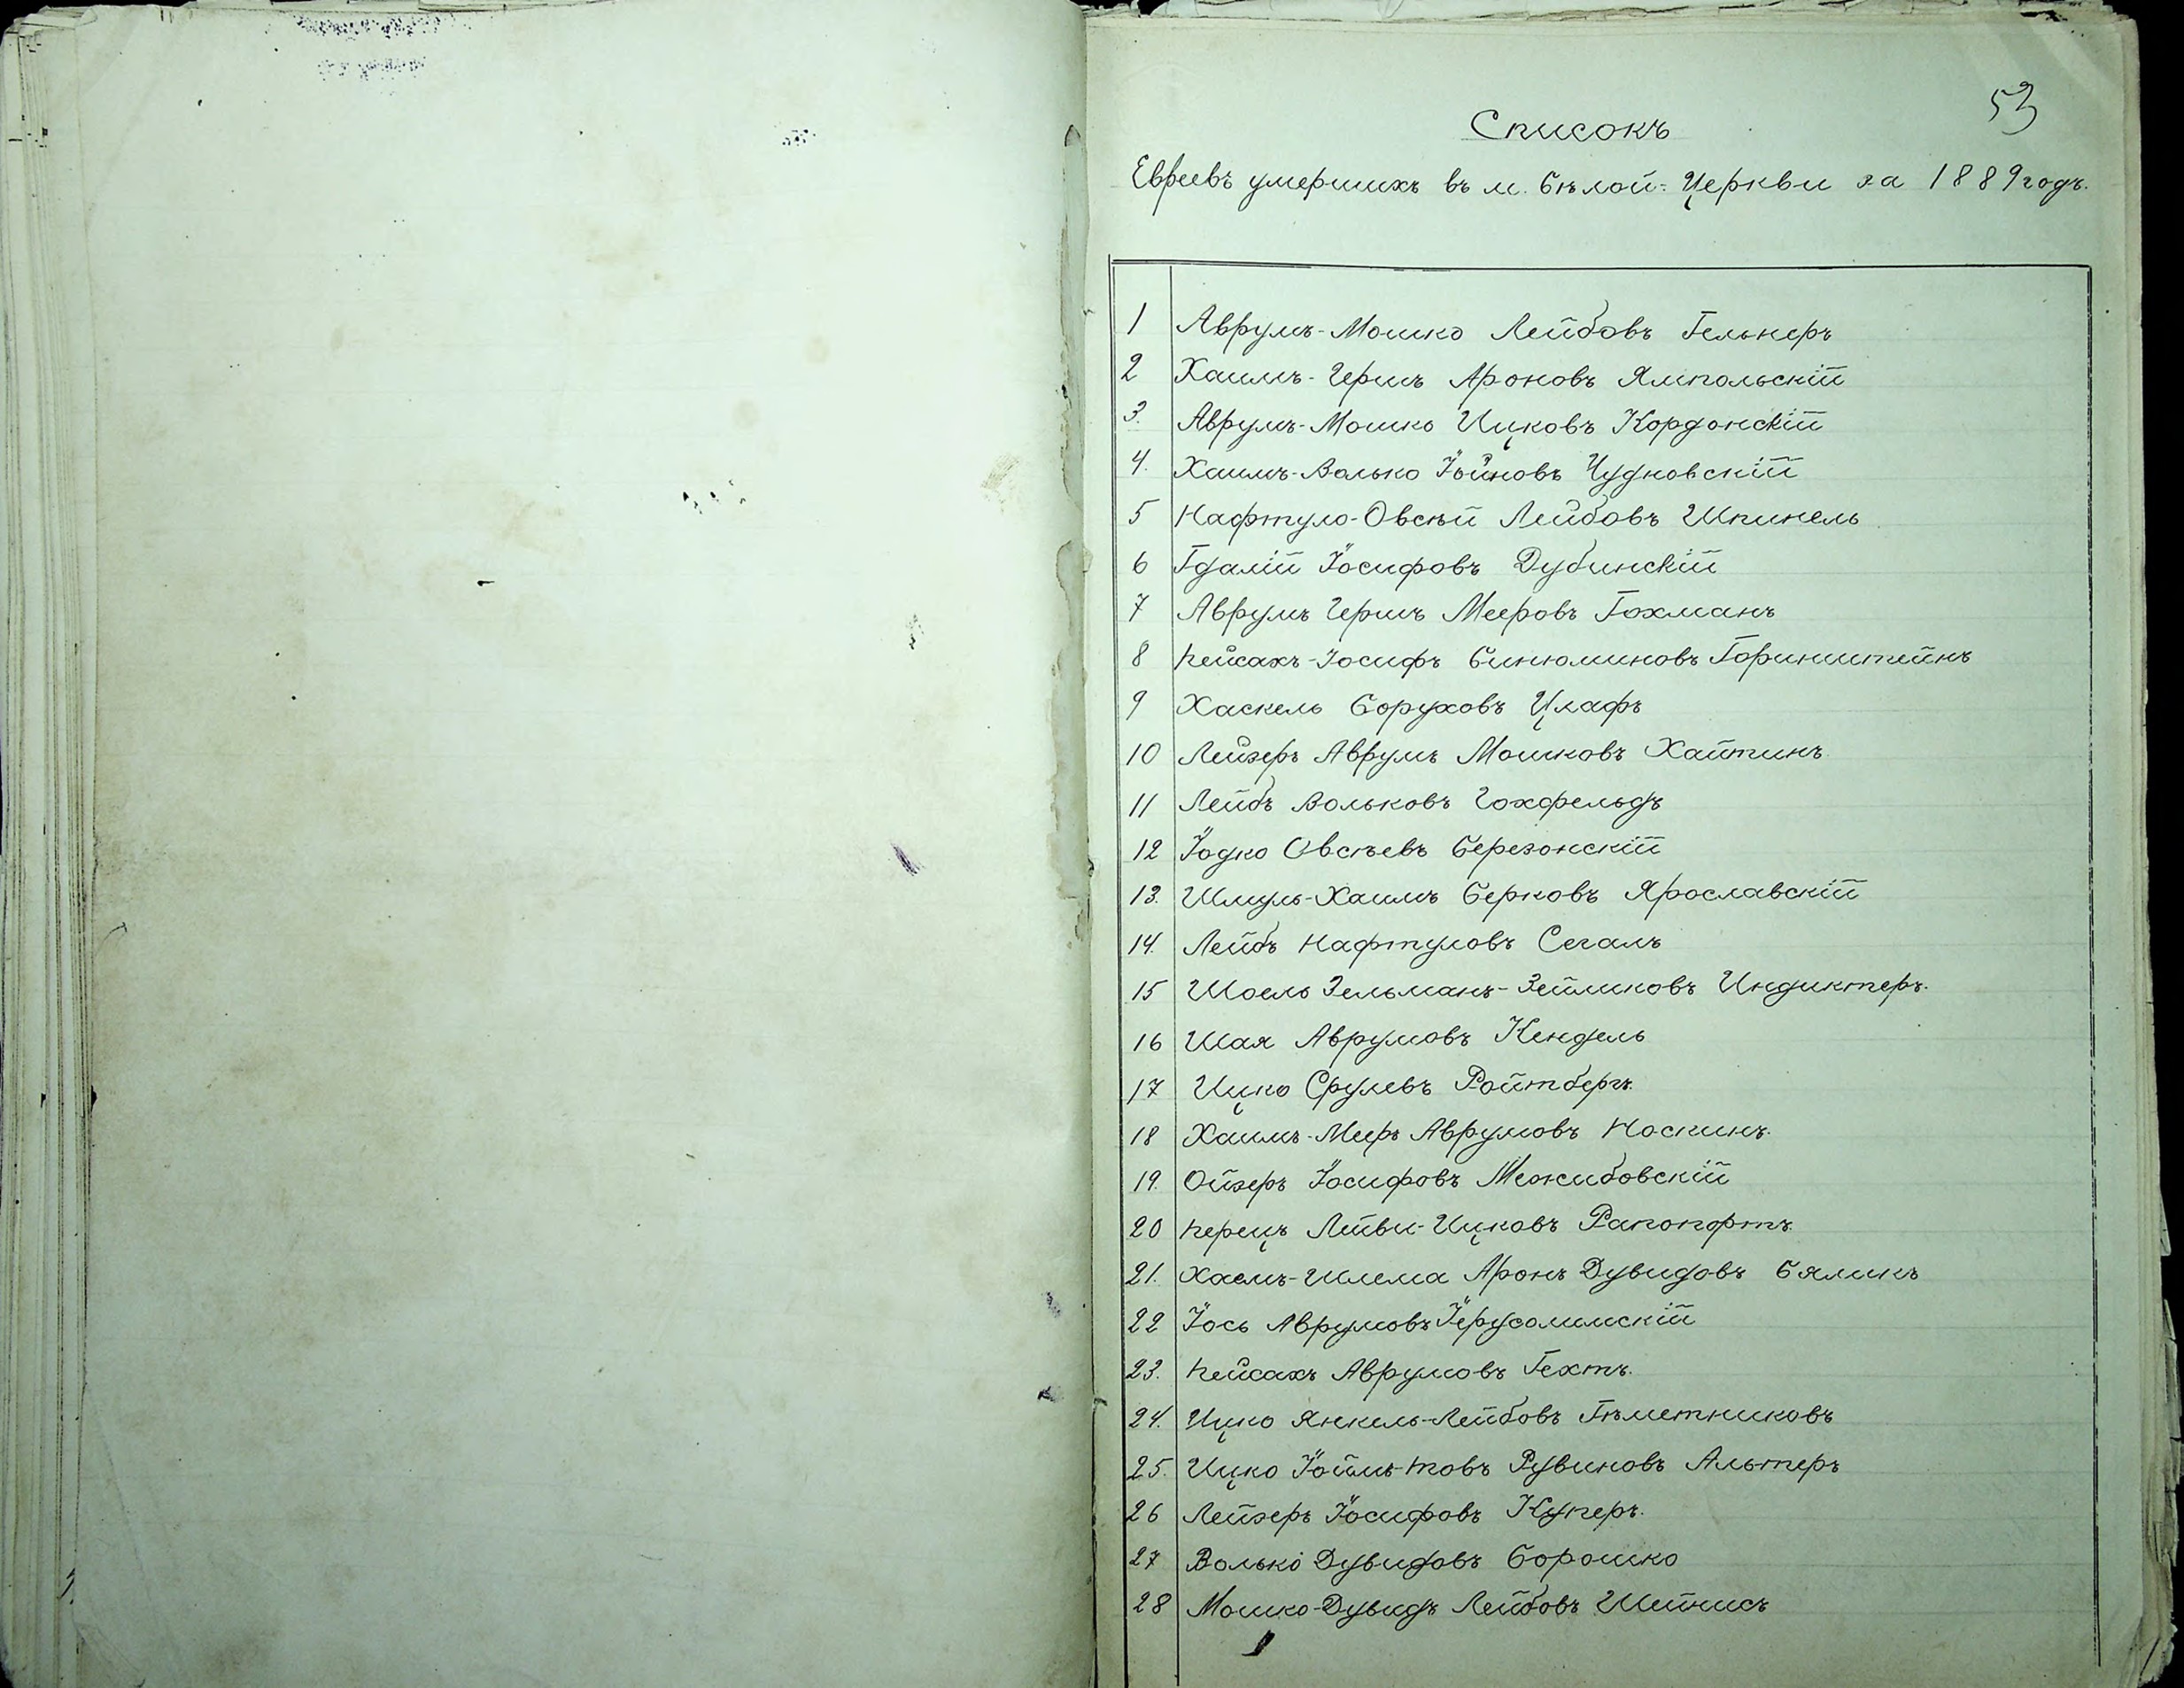 53
Списокъ
Евреевъ умершихъ въ м. Бѣлой-Церкви за 1889 годъ.
1 Аврумъ-Мошко Лейбовъ Гельнеръ
2 Хаимъ-Гершъ Ароновъ Ямпольскій
3. Аврумъ-Мошко Ицковъ Кордонскій
4. Хаимъ-Волько Іойновъ Чудновскій
5 Нафтуло-Овсѣй Лейбовъ Шпинель
6 Гдалій Іосифовъ Дубинскій
7 Аврумъ Гершъ Мееровъ Гохманъ
8 Пейсахъ-Іосифъ Бинюминовъ Горинштейнъ
9 Хаскель Боруховъ Цлафъ
10 Лейзеръ Аврумъ Мошковъ Хайтинъ
11 Лейбъ Вольковъ Гохфельдъ
12 Іодко Овсѣевъ Березонскій
13. Шмуль-Хаимъ Берковъ Ярославскій
14. Лейбъ Нафтуловъ Сегалъ
15 Шоель Зельманъ-Зейликовъ Индиктеръ.
16 Шая Аврумовъ Кендель
17 Ицко Срулевъ Ройтбергъ
18 Хаимъ-Мееръ Аврумовъ Носкинъ.
19. Ойзеръ Іосифовъ Межибовскій
20 Перецъ Лейви-Ицковъ Рапопортъ
21. Хаемъ-Шлема Аронъ Дувидовъ Бяликъ
22 Іось Аврумовъ Іерусолимскій
23. Пейсахъ Аврумовъ Гехтъ.
24. Ицко Янкель-Лейбовъ Гѣметниковъ
25. Ицко Іойлъ-Товъ Рувиновъ Альтеръ
26 Лейзеръ Іосифовъ Куперъ.
27 Волько Дувидовъ Борошко
28 Мошко-Дувидъ Лейбовъ Шейнисъ